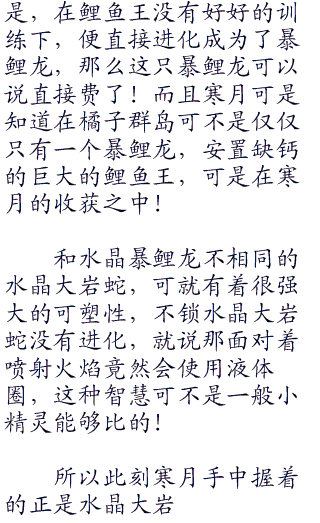 是，在鲤鱼王没有好好的训
练下，便直接进化成为了暴
鲤龙，那么这只暴鲤龙可以
说直接费了！而且寒月可是
知道在橘子群岛可不是仅仅
只有一个暴鲤龙，安置缺钙
的巨大的鲤鱼王，可是在寒
月的收获之中！
和水晶暴鲤龙不相同的
水晶大岩蛇，可就有着很强
大的可塑性，不锁水晶大岩
蛇没有进化，就说那面对着
喷射火焰竟然会使用液体
圈，这种智慧可不是一般小
精灵能够比的！
所以此刻寒月手中握着
的正是水晶大岩